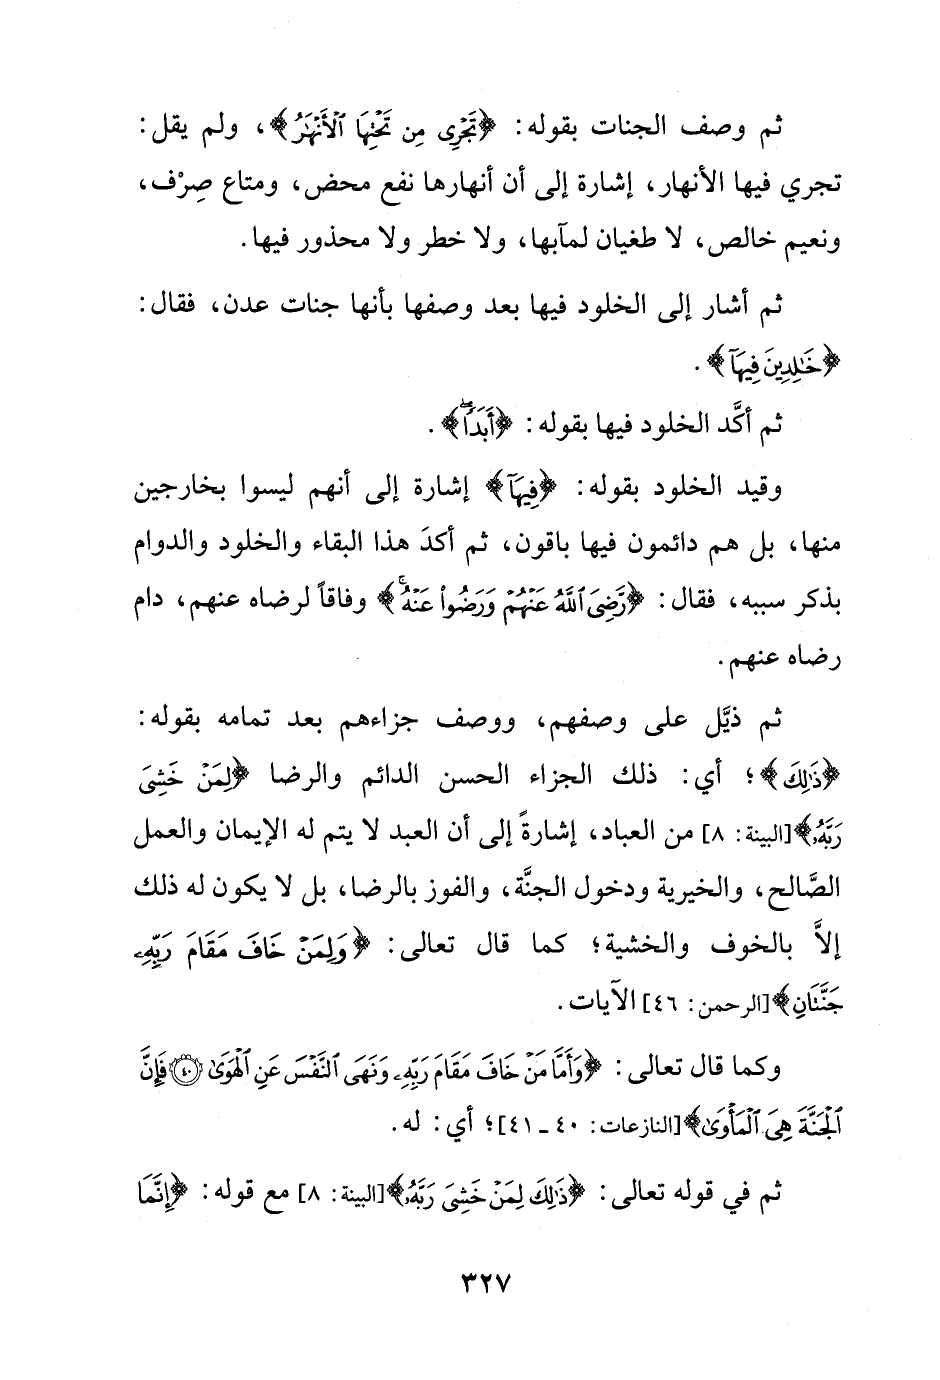 ثم وصف الجنات بقوله: ﴿تَجْرِى مِن تَحْتِهَا ٱلْأَنْهَٰرُ﴾، ولم يقل:
تجري فيها الأنهار، إشارة إلى أن أنهارها نفع محض، ومتاع صِرْف،
ونعيم خالص، لا طغيان لمآبها، ولا خطر ولا محذور فيها.
ثم أشار إلى الخلود فيها بعد وصفها بأنها جنات عدن، فقال:
﴿خَٰلِدِينَ فِيهَآ﴾.
ثم أكَّد الخلود فيها بقوله: ﴿أَبَدًاۖ﴾.
وقيد الخلود بقوله: ﴿فِيهَآ﴾ إشارة إلى أنهم ليسوا بخارجين
منها، بل هم دائمون فيها باقون، ثم أكدَ هذا البقاء والخلود والدوام
بذكر سببه، فقال: ﴿رَّضِىَ ٱللَّهُ عَنْهُمْ وَرَضُوا۟ عَنْهُۚ﴾ وفاقاً لرضاه عنهم، دام
رضاه عنهم.
ثم ذيَّل على وصفهم، ووصف جزاءهم بعد تمامه بقوله:
﴿ذَٰلِكَ﴾؛ أي: ذلك الجزاء الحسن الدائم والرضا ﴿لِمَنْ خَشِىَ
رَبَّهُۥ﴾[البينة: ٨] من العباد، إشارةً إلى أن العبد لا يتم له الإيمان والعمل
الصَّالح، والخيرية ودخول الجنَّة، والفوز بالرضا، بل لا يكون له ذلك
إلاَّ بالخوف والخشية؛ كما قال تعالى: ﴿وَلِمَنْ خَافَ مَقَامَ رَبِّهِۦ
جَنَّتَانِ﴾[الرحمن: ٤٦] الآيات.
وكما قال تعالى: ﴿وَأَمَّا مَنْ خَافَ مَقَامَ رَبِّهِۦ وَنَهَى ٱلنَّفْسَ عَنِ ٱلْهَوَىٰ ۝٤٠ فَإِنَّ
ٱلْجَنَّةَ هِىَ ٱلْمَأْوَىٰ﴾[النازعات: ٤٠ ـ ٤١]؛ أي: له.
ثم في قوله تعالى: ﴿ذَٰلِكَ لِمَنْ خَشِىَ رَبَّهُۥ﴾[البينة: ٨] مع قوله: ﴿إِنَّمَا
٣٢٧